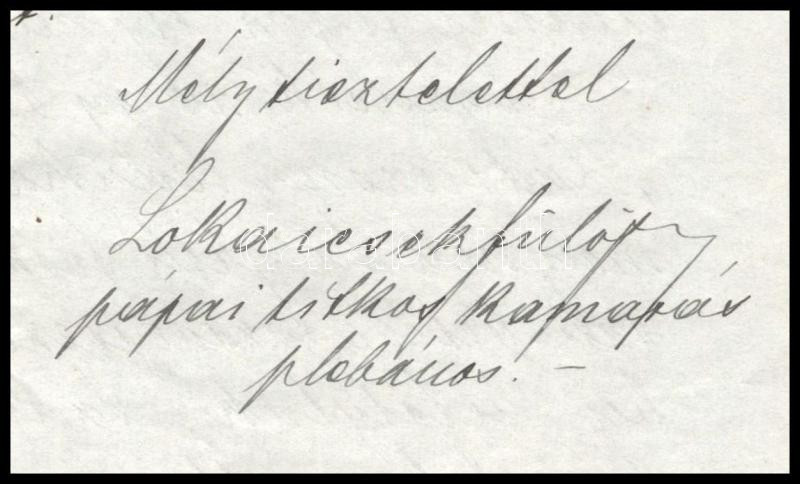 Mély tisztelettel
Lokaicsek fülöp
pápai titkos kamarás
plebános. —
darabanth